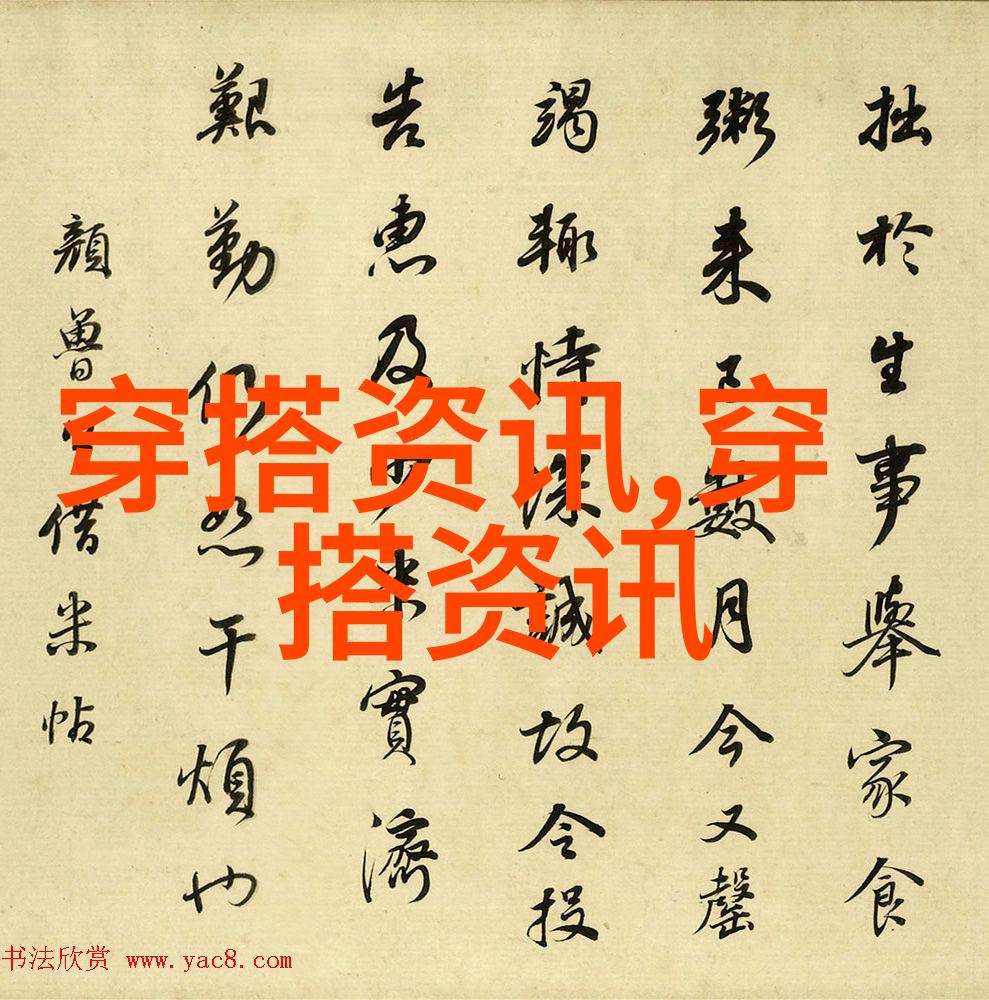 拙於生事舉家食
粥来已數月今又罄
竭輙恃深誠故令投
告惠及少米實濟
艱勤仍恕干煩也
顏魯公借米帖
穿搭资讯,穿
搭资讯
书法欣赏 www.yac8.com